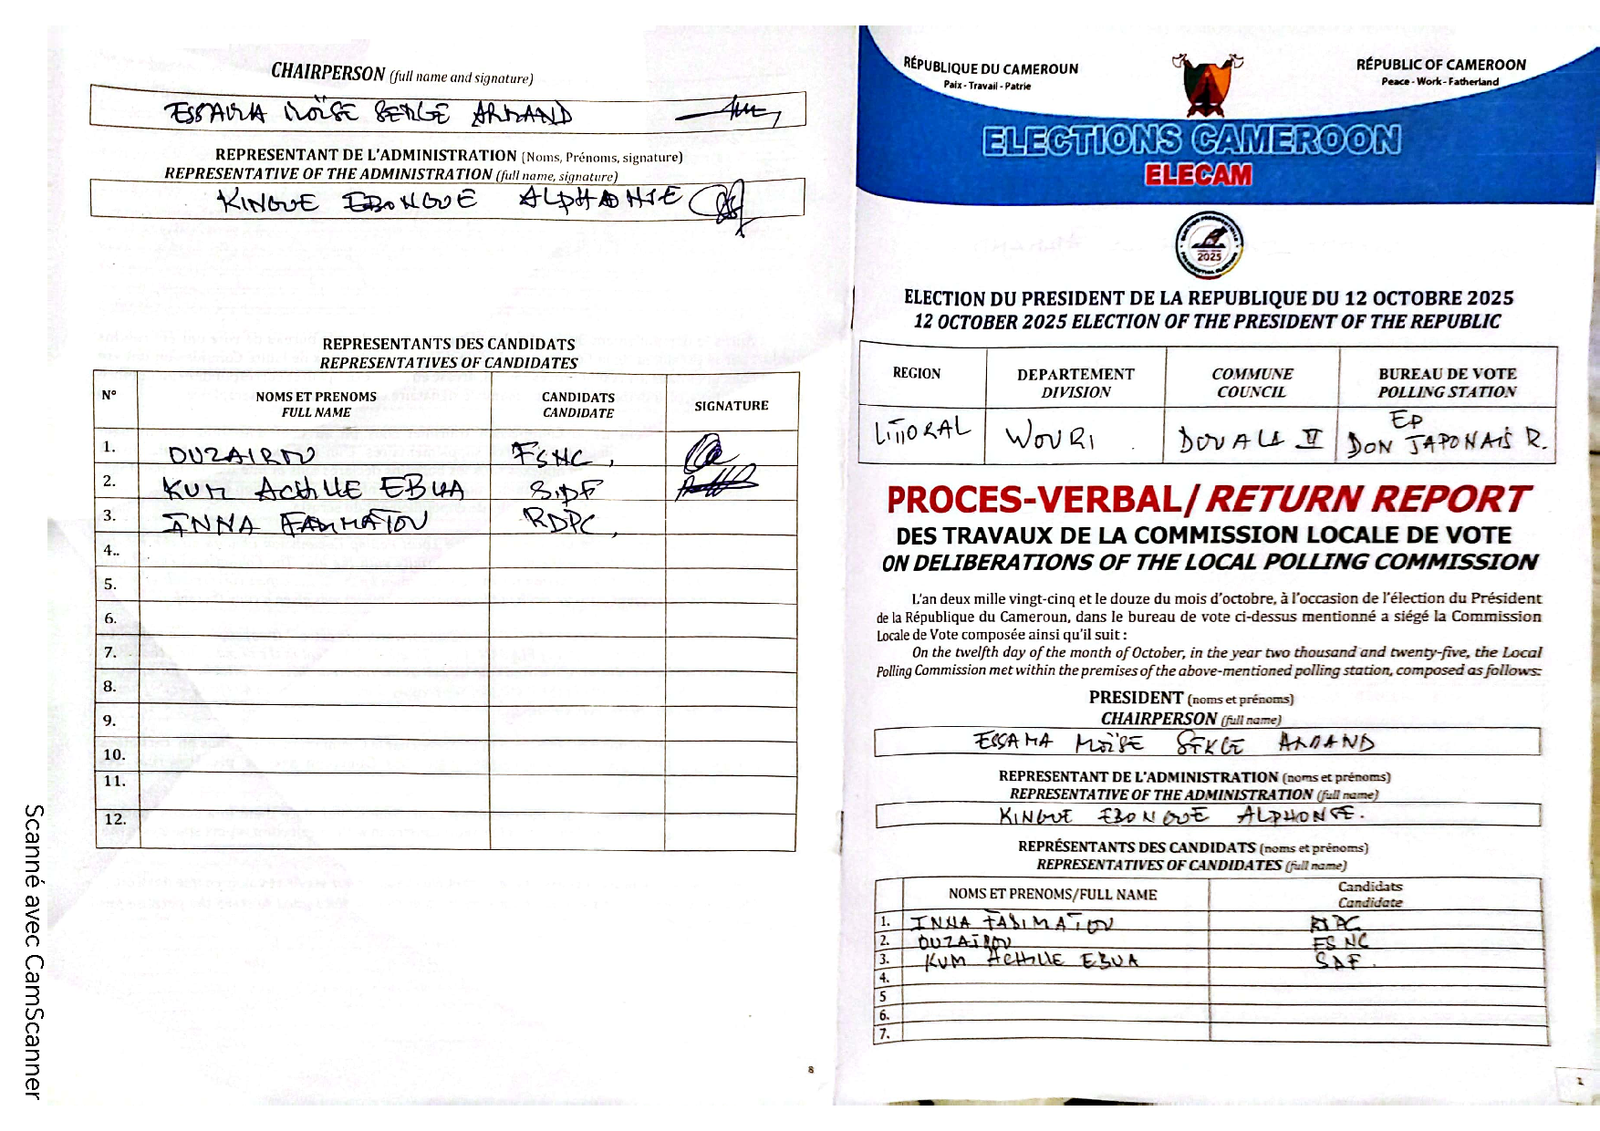 CHAIRPERSON (full name and signature)
ESSAMA MOÏSE SERGE ARMAND
REPRESENTANT DE L'ADMINISTRATION (Noms, Prénoms, signature)
REPRESENTATIVE OF THE ADMINISTRATION (full name, signature)
KINGUE EBONGUE ALPHONSE
REPRESENTANTS DES CANDIDATS
REPRESENTATIVES OF CANDIDATES
N° NOMS ET PRENOMS CANDIDATS SIGNATURE
FULL NAME CANDIDATE
1. OUZAIROU FSNC,
2. KUM ACHILLE EBUA SDF
3. INNA FADIMATOU RDPC,
4..
5.
6.
7.
8.
9.
10.
11.
12.
8
Scanné avec CamScanner
RÉPUBLIQUE DU CAMEROUN
Paix - Travail - Patrie
RÉPUBLIC OF CAMEROON
Peace - Work - Fatherland
ELECTIONS CAMEROON
ELECAM
ELECTION PRESIDENTIELLE
2025
PRESIDENTIAL ELECTION
ELECTION DU PRESIDENT DE LA REPUBLIQUE DU 12 OCTOBRE 2025
12 OCTOBER 2025 ELECTION OF THE PRESIDENT OF THE REPUBLIC
REGION DEPARTEMENT COMMUNE BUREAU DE VOTE
DIVISION COUNCIL POLLING STATION
LITTORAL WOURI DOUALA II EP
DON JAPONAIS R.
PROCES-VERBAL/RETURN REPORT
DES TRAVAUX DE LA COMMISSION LOCALE DE VOTE
ON DELIBERATIONS OF THE LOCAL POLLING COMMISSION
L'an deux mille vingt-cinq et le douze du mois d'octobre, à l'occasion de l'élection du Président
de la République du Cameroun, dans le bureau de vote ci-dessus mentionné a siégé la Commission
Locale de Vote composée ainsi qu'il suit :
On the twelfth day of the month of October, in the year two thousand and twenty-five, the Local
Polling Commission met within the premises of the above-mentioned polling station, composed as follows:
PRESIDENT (noms et prénoms)
CHAIRPERSON (full name)
ESSAMA MOÏSE SERGE ARMAND
REPRESENTANT DE L'ADMINISTRATION (noms et prénoms)
REPRESENTATIVE OF THE ADMINISTRATION (full name)
KINGUE EBONGUE ALPHONSE.
REPRÉSENTANTS DES CANDIDATS (noms et prénoms)
REPRESENTATIVES OF CANDIDATES (full name)
NOMS ET PRENOMS/FULL NAME Candidats
Candidate
1. INNA FADIMATOU RDPC
2. OUZAÏROU FSNC
3. KUM ACHILLE EBUA SDF.
4.
5
6.
7.
1